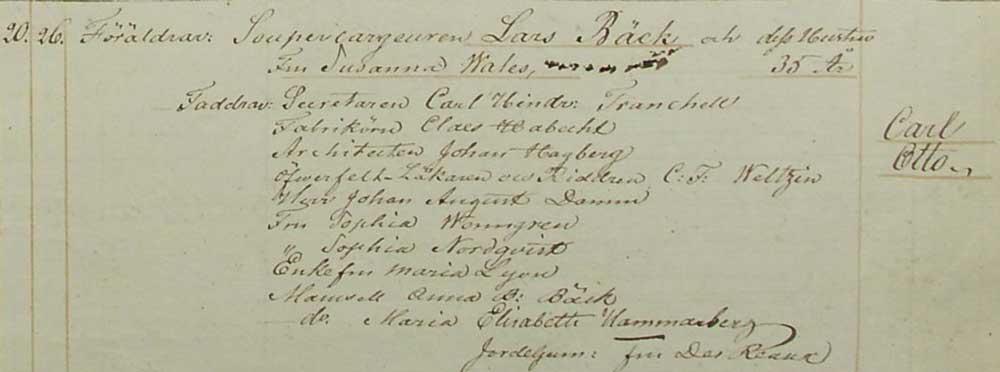 20. 26. Föräldrar: Soupercargeuren Lars Bäck och dess Hustru
Fru Susanna Wales, 35 År
Faddrar: Secretaren Carl Hindr: Tranchell
Fabrikörn Claes Habecht
Architecten Johan Hagberg
Öfwerfelt-Läkaren och Riddren C: F: Weltzin
Herr Johan August Damm
Fru Sophia Wenngren
" Sophia Nordqvist
Enkefru Maria Lyon
Mamsell Anna B: Bäck
do. Maria Elisabeth Hammarberg
Jordegum: Fru Des Reaux
Carl
Otto